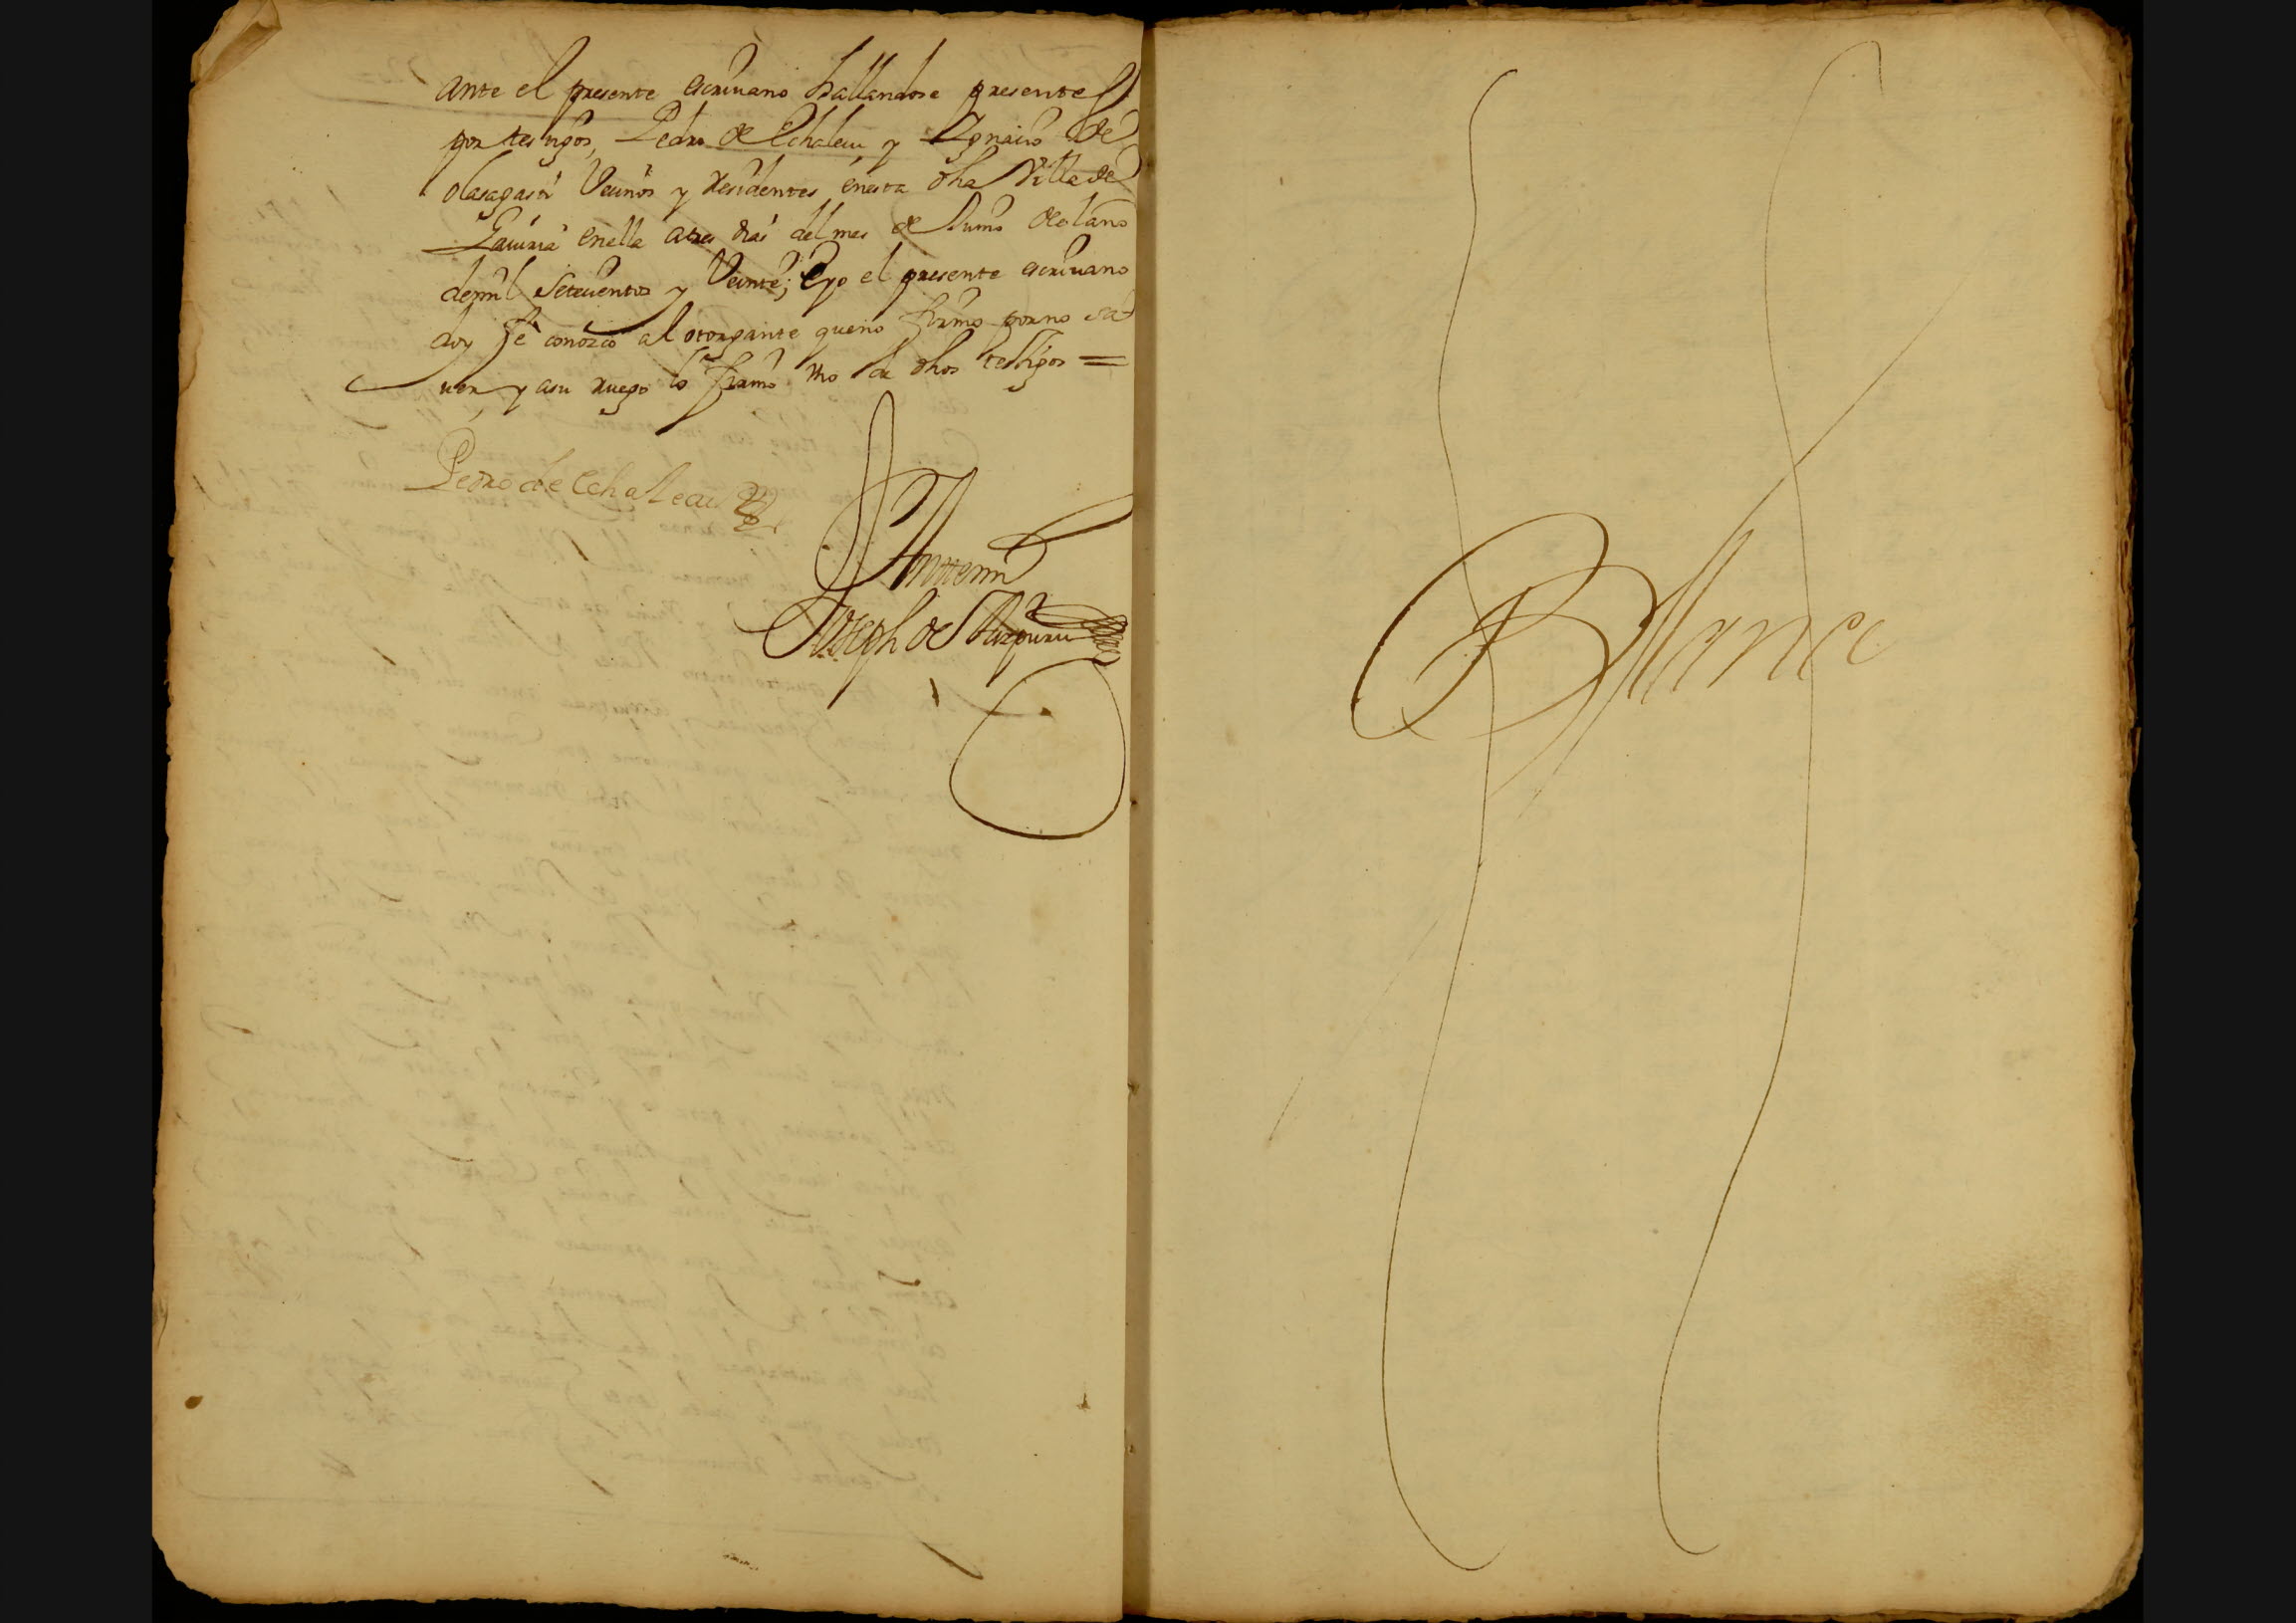 ante el presente escriuano hallandose presentes
por testigos, Pedro de Echaleau y Ygnacio de
olasagasti Vecinos y Residentes enesta dha Villa de
Gauiria enella atres dias del mes de Junio del año
demil setecientos y Veinte; Eyo el presente escriuano
doy fe conozco al otorgante queno firmo porno sa
uer, y asu ruego lo firmo vno de dhos testigos =
Pedro de Echaleau
Antemi
Joseph de
Blanca